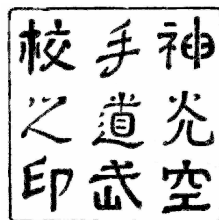 神光空
手道武
校之印